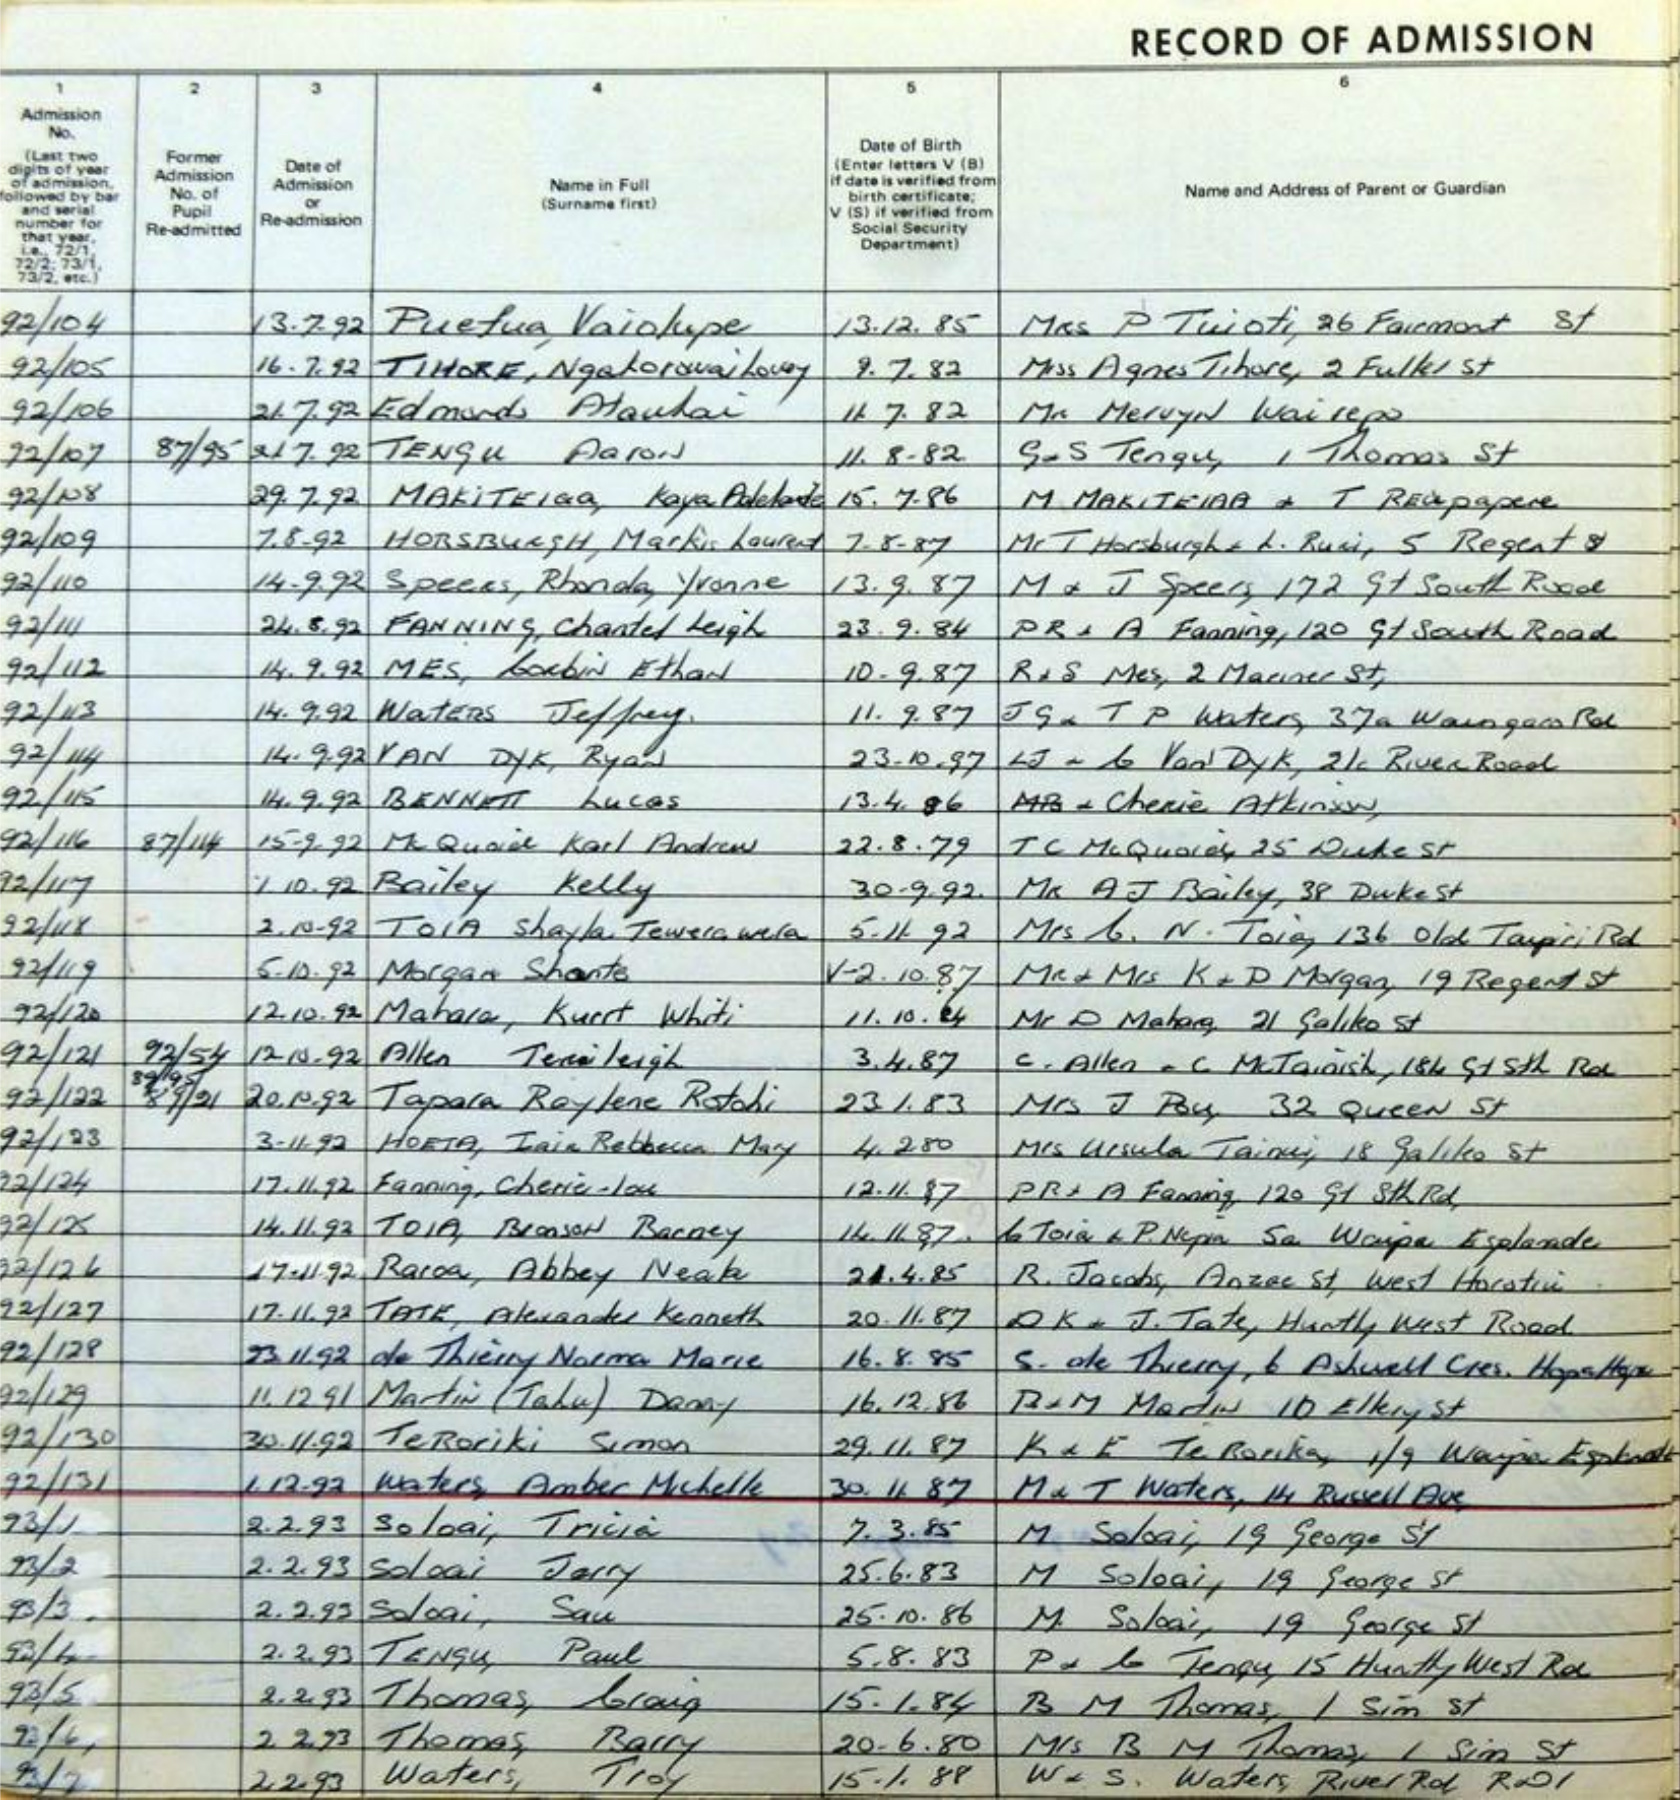 RECORD OF ADMISSION
1 2 3 4 5 6
Admission No. (Last two digits of year of admission, followed by bar and serial number for that year, i.e., 72/1, 72/2; 73/1, 73/2, etc.)
Former Admission No. of Pupil Re-admitted
Date of Admission or Re-admission
Name in Full (Surname first)
Date of Birth (Enter letters V (B) if date is verified from birth certificate; V (S) if verified from Social Security Department)
Name and Address of Parent or Guardian
92/104 13.7.92 Puefua, Vaiolupe 13.12.85 Mrs P Tuioti, 26 Fairmont St
92/105 16.7.92 TIHORE, 9.7.82 Miss Agnes Tihore, 2 Fuller St
92/106 21.7.92 Edmonds Ataukai 11.7.82 Mr Mervyn Wairepo
92/107 87/95 21.7.92 TENGU Aaron 11.8-82 G & S Tengu, 1 Thomas St
92/108 29.7.92 MAKITEIAA, Kaya Adelaide 15.7.86 M MAKITEIAA & T
92/109 7.8-92 HORSBURGH, Markis Laurent 7-8-87 Mr T Horsburgh & L. Ruri, 5 Regent St
92/110 14-9.92 Speers, Rhonda, Yvonne 13.9.87 M & J Speers, 172 Gt South Road
92/111 24.8.92 FANNING, Chantel Leigh 23.9.84 PR & A Fanning, 120 Gt South Road
92/112 14.9.92 MES, Corbin Ethan 10-9.87 R & S Mes, 2 Mariner St,
92/113 14.9.92 Waters Jeffrey. 11.9.87 J G & T P Waters, 37a Waingaro Rd
92/114 14.9.92 VAN DYK, Ryan 23-10.97 LJ & C Van Dyk, 21c River Road
92/115 14.9.92 BENNETT Lucas 13.4.86 MB & Cherie Atkinson,
92/116 87/114 15-9.92 McQuaid Karl Andrew 22.8.79 TC McQuaid, 25 Duke St
92/117 1.10.92 Bailey Kelly 30-9.92. Mr A J Bailey, 38 Duke St
92/118 2.10-92 TOIA Shayla Tewerawera 5-11 92 Mrs C. N. Toia, 136 Old Taupiri Rd
92/119 5-10.92 Morgan Shante V-2.10.87 Mr & Mrs K & D Morgan, 19 Regent St
92/120 12.10.92 Mahara, Kurrt Whiti 11.10.84 Mr D Mahara, 21 Galileo St
92/121 92/54 12-10-92 Allen Terrileigh 3.4.87 C. Allen & C McTainish, 184 Gt Sth Rd
92/122 89/95 89/21 20.10.92 Tapara Raylene Rotohi 23 1.83 Mrs J Pou, 32 Queen St
92/123 3-11.92 HOETA, Iaia Rebbecca Mary 4.2 80 Mrs Ursula Tainui, 18 Galileo St
92/124 17.11.92 Fanning, Cherie-lou 12.11.87 PR & A Fanning, 120 Gt Sth Rd,
92/125 14.11.92 TOIA, Bronson Barney 14.11.87. C Toia & P. Nepia 5a Waipa Esplanade
92/126 17-11.92 Raroa, Abbey Neata 21.4.85 R. Jacobs, Anzac St, West Horotiu
92/127 17-11.92 TATE, Alexander Kenneth 20.11.87 D K & J. Tate, Huntly West Road
92/128 23.11.92 de Thierry Norma Marie 16.8.85 S. de Thierry, 6 Ashwell Cres. Hopu Hopu
92/129 11.12 91 Martin (Tahu) Danny 16.12.86 B & M Martin 10 Ellery St
92/130 30.11.92 TeRoriki Simon 29.11.87 K & E Te Roriki, 1/9 Waipa Esplanade
92/131 1.12-92 Waters, Amber Michelle 30.11 87 M & T Waters, 14 Russell Ave
93/1 2.2.93 Soloai, Tricia 7.3.85 M Soloai, 19 George St
93/2 2.2.93 Soloai Jerry 25.6.83 M Soloai, 19 George St
93/3. 2.2.93 Soloai, Sau 25-10.86 M Soloai, 19 George St
93/4 2.2.93 TENGU, Paul 5.8.83 P & C Tengu, 15 Huntly West Rd
93/5 2.2.93 Thomas, Craig 15-1.84 B M Thomas, 1 Sim St
93/6, 2 2.93 Thomas, Barry 20-6.80 Mrs B M Thomas, 1 Sim St
93/7 2.2.93 Waters, Troy 15.1.88 W & S. Waters, River Rd R.D1